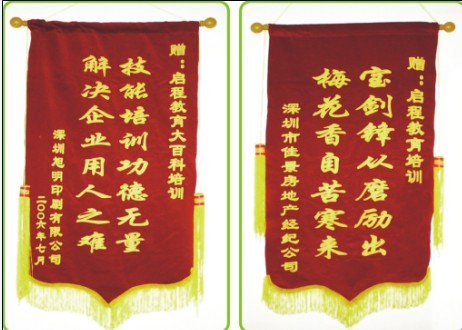 赠：启程教育大百科培训
技能培训功德无量
解决企业用人之难
深圳旭明印刷有限公司
二〇〇六年七月
赠：启程教育培训
宝剑锋从磨励出
梅花香自苦寒来
深圳市佳景房地产经纪公司